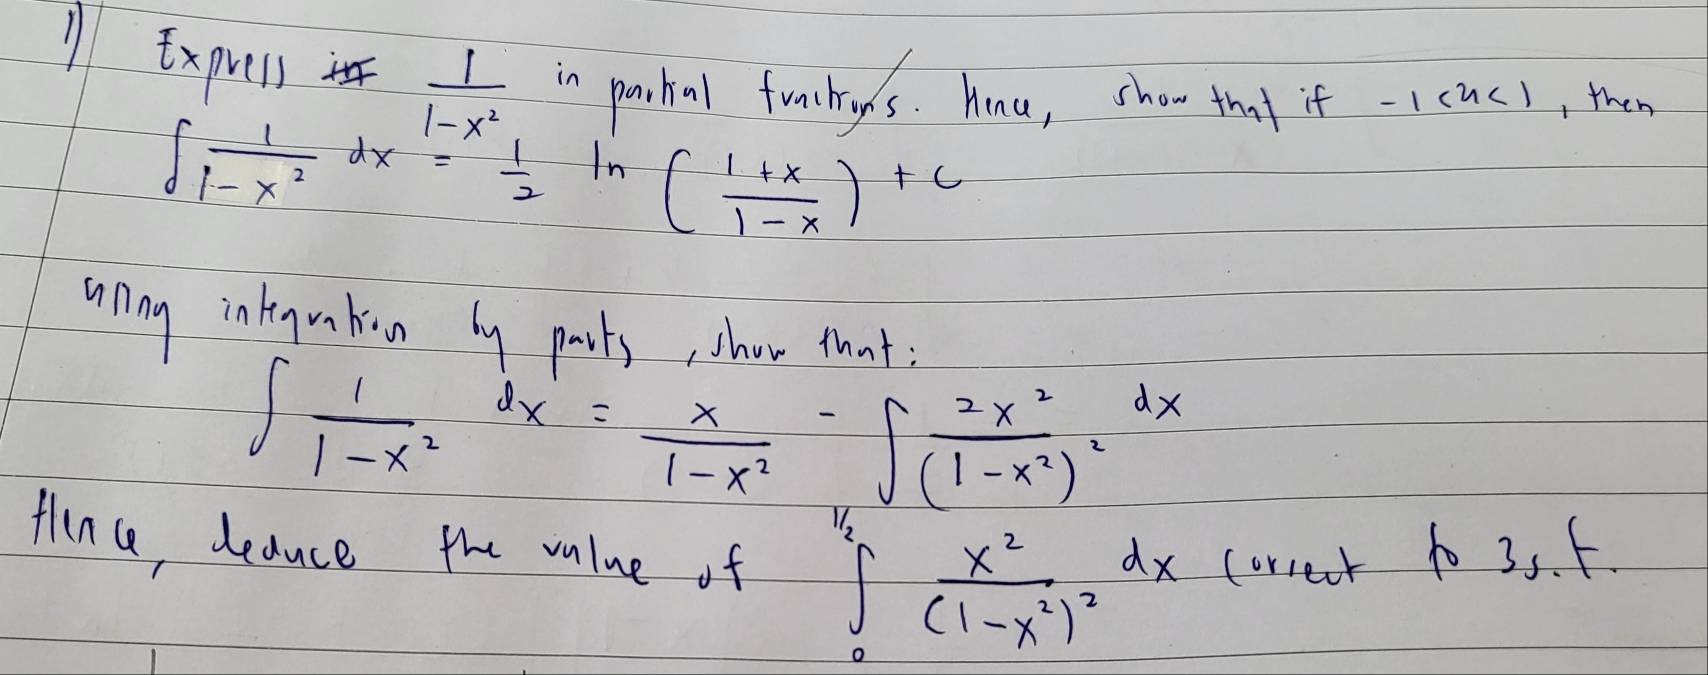 1) Express 1/(1-x²) in partial fractions. Hence, show that if -1<x<1, then
∫ 1/(1-x²) dx = 1/2 ln ((1+x)/(1-x)) + c
using integration by parts, show that:
∫ 1/(1-x²) dx = x/(1-x²) - ∫ 2x²/(1-x²)² dx
Hence, deduce the value of ∫₀^(1/2) x²/(1-x²)² dx correct to 3s.f.